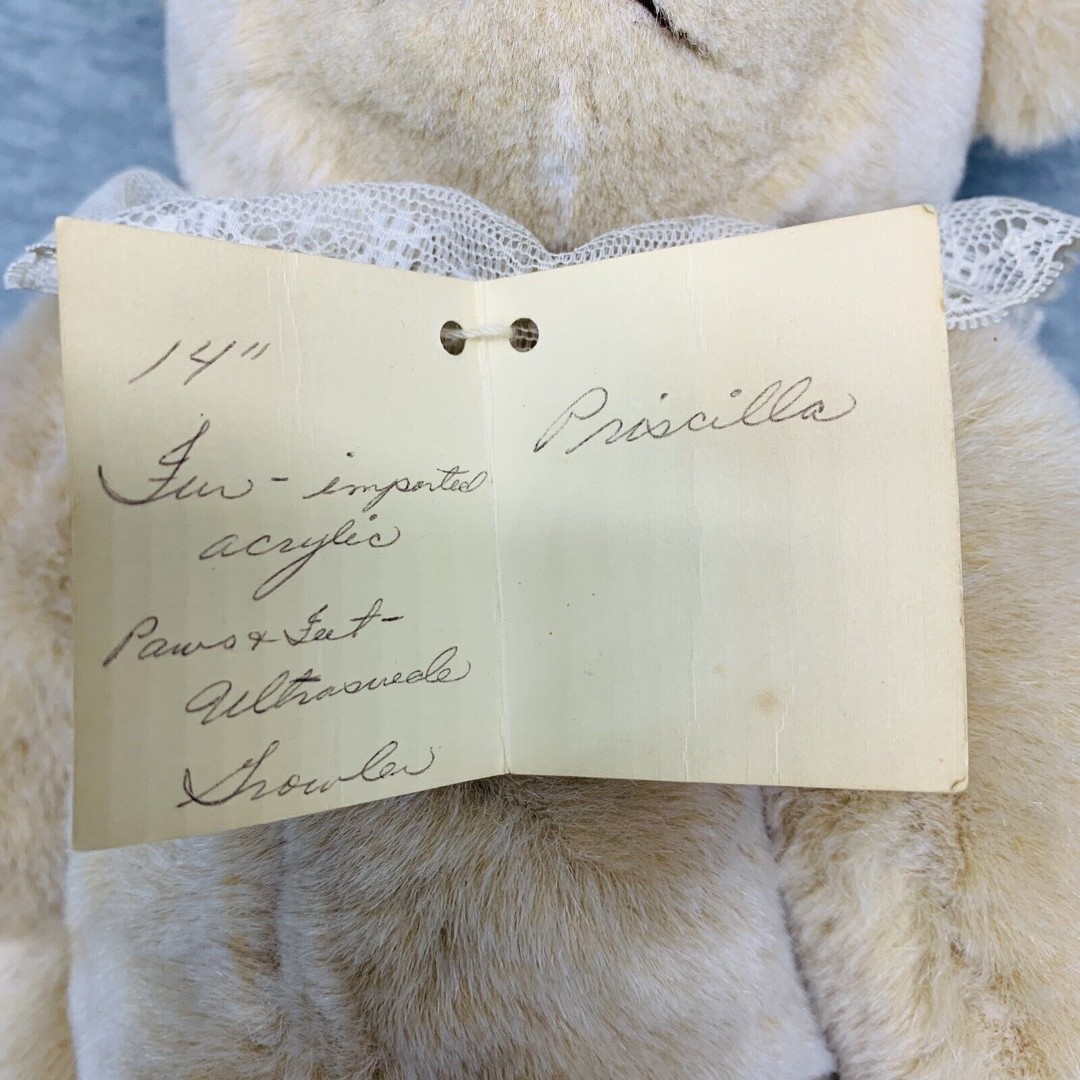 14"
Fur - imported
acrylic
Paws & Feet -
Ultrasuede
Growler
Priscilla